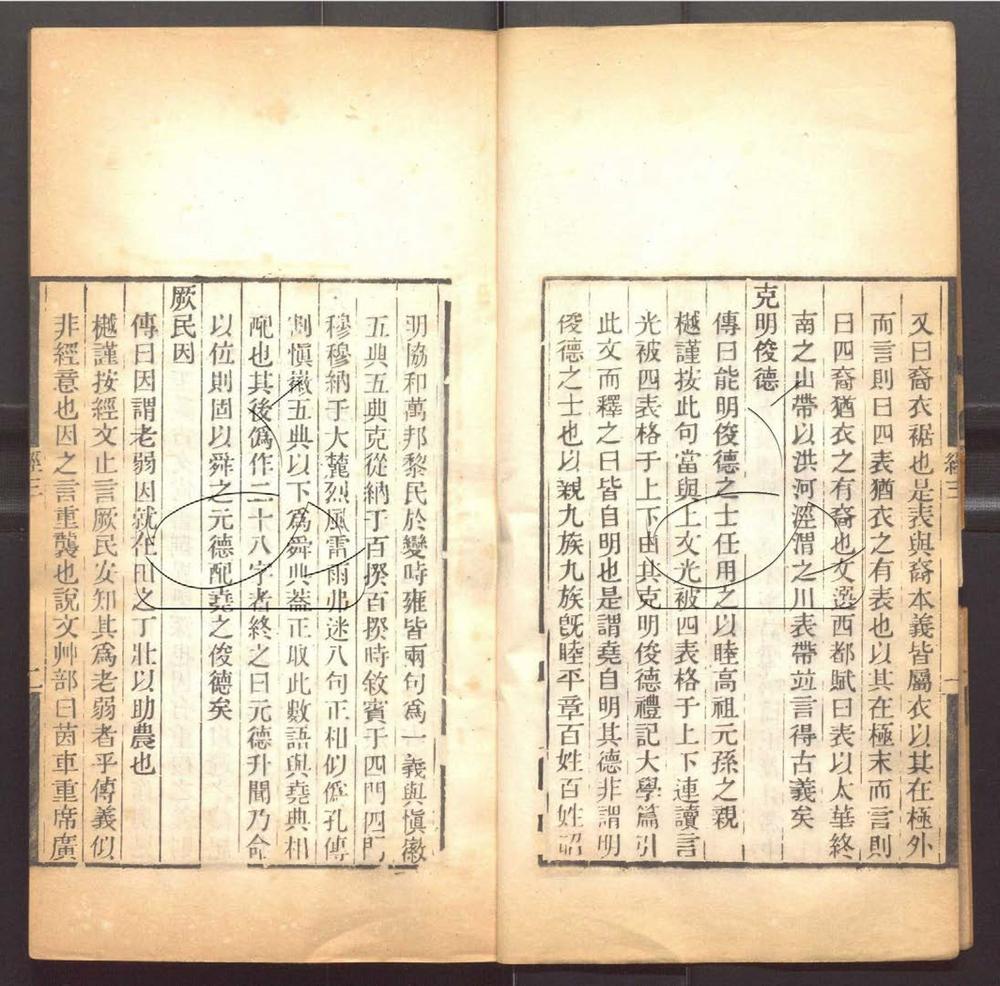 又曰裔衣裾也是表與裔本義皆屬衣以其在極外
而言則曰四表猶衣之有表也以其在極末而言則
曰四裔猶衣之有裔也文選西都賦曰表以太華終
南之山帶以洪河涇渭之川表帶竝言得古義矣
克明俊德
傳曰能明俊德之士任用之以睦高祖元孫之親
樾謹按此句當與上文光被四表格于上下連讀言
光被四表格于上下由其克明俊德禮記大學篇引
此文而釋之曰皆自明也是謂堯自明其德非謂明
俊德之士也以親九族九族旣睦平章百姓百姓昭
經三
一
明協和萬邦黎民於變時雍皆兩句爲一義與愼徽
五典五典克從納于百揆百揆時敘賓于四門四門
穆穆納于大麓烈風雷雨弗迷八句正相似僞孔傳
割愼徽五典以下爲舜典葢正取此數語與堯典相
配也其後僞作二十八字者終之曰元德升聞乃命
以位則固以舜之元德配堯之俊德矣
厥民因
傳曰因謂老弱因就在田之丁壯以助農也
樾謹按經文止言厥民安知其爲老弱者乎傳義似
非經意也因之言重襲也說文艸部曰茵車重席廣
經三